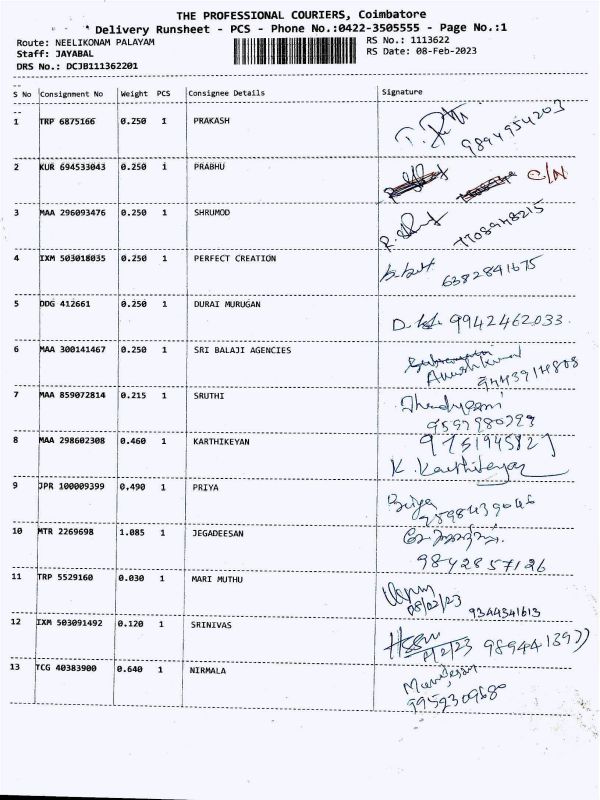 THE PROFESSIONAL COURIERS, Coimbatore
* Delivery Runsheet - PCS - Phone No.:0422-3505555 - Page No.:1
Route: NEELIKONAM PALAYAM RS No.: 1113622
Staff: JAYABAL RS Date: 08-Feb-2023
DRS No.: DCJB111362201
S No Consignment No Weight PCS Consignee Details Signature
1 TRP 6875166 0.250 1 PRAKASH 9894954203
2 KUR 694533043 0.250 1 PRABHU C/N
3 MAA 296093476 0.250 1 SHRUMOD 7708948215
4 IXM 503018035 0.250 1 PERFECT CREATION 6382841675
5 DDG 412661 0.250 1 DURAI MURUGAN 9942462033.
6 MAA 300141467 0.250 1 SRI BALAJI AGENCIES
7 MAA 859072814 0.215 1 SRUTHI
8 MAA 298602308 0.460 1 KARTHIKEYAN
K. Karthikeyan
9 JPR 100009399 0.490 1 PRIYA Priya
10 MTR 2269698 1.085 1 JEGADEESAN
9842857126
11 TRP 5529160 0.030 1 MARI MUTHU
08/02/23 9344341613
12 IXM 503091492 0.120 1 SRINIVAS
13 TCG 40383900 0.640 1 NIRMALA
9952309680